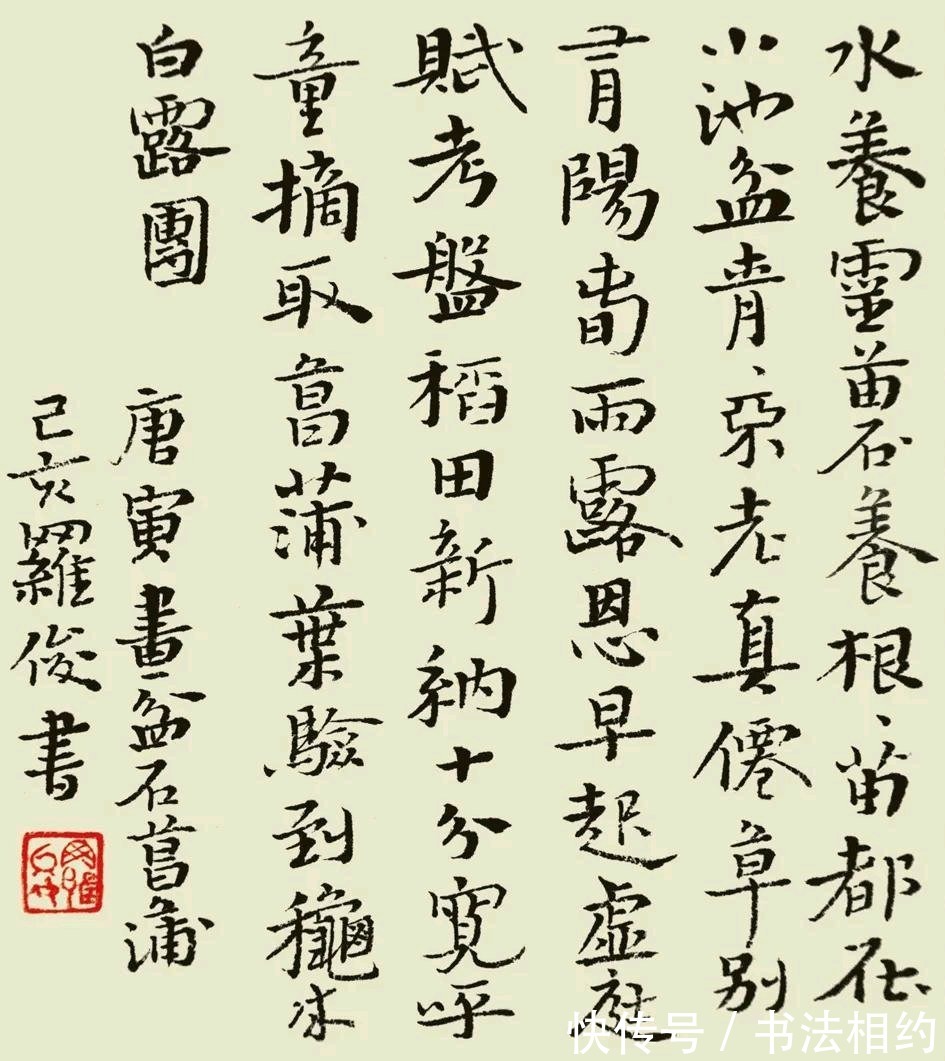 水養靈苗石養根〻苗都在
小池盆青〻不老真僊草別
有陽旾雨露恩早起虛庭
賦考盤稻田新納十分寬呼
童摘取菖蒲葉驗到龝来
白露團
唐寅畫盆石菖蒲
己亥羅俊書
快传号 / 书法相约